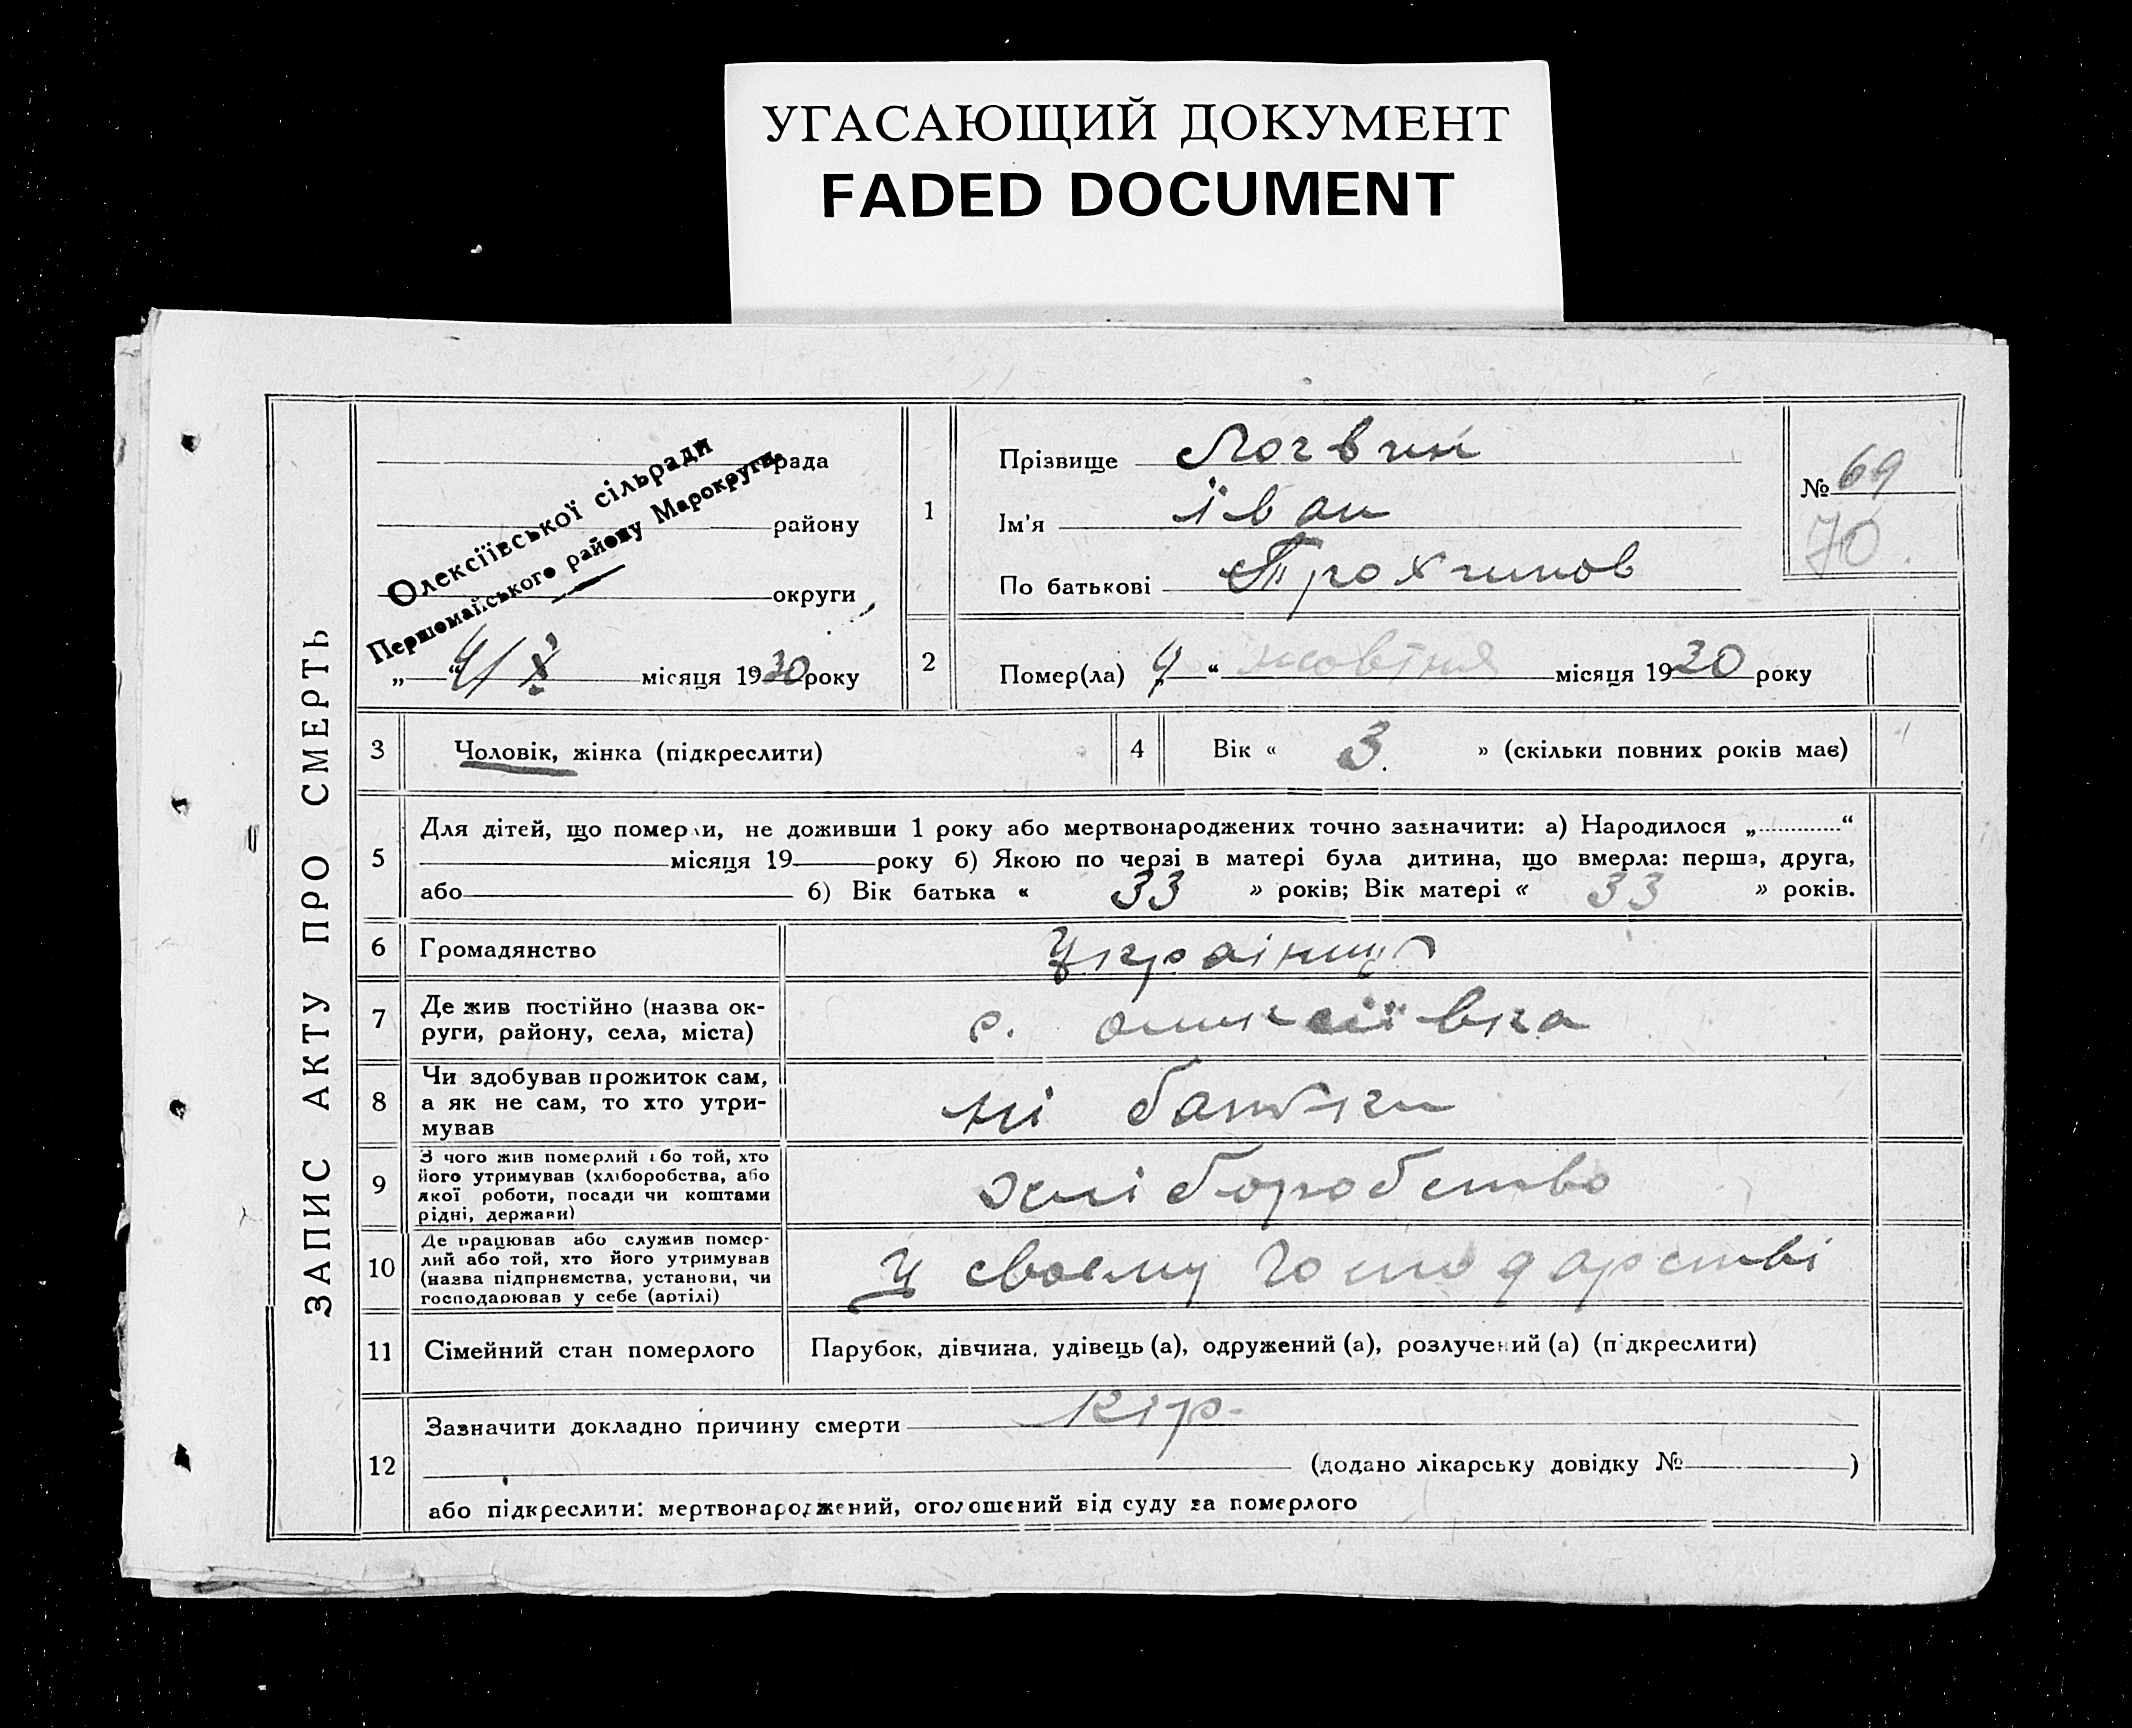 УГАСАЮЩИЙ ДОКУМЕНТ
FADED DOCUMENT
ЗАПИС АКТУ ПРО СМЕРТЬ
рада
району
округи
Олексіївської сільради
Першомайського району Марокруги
„ “ 4/X місяця 1930 року
1
Прізвище Логвин
Ім'я Іван
По батькові Трохимов
№ 69
70.
2
Помер(ла) „4“ жовтня місяця 1930 року
3 Чоловік, жінка (підкреслити)
4 Вік « 3. » (скільки повних років має)
5
Для дітей, що померли, не доживши 1 року або мертвонароджених точно зазначити: а) Народилося „ “
місяця 19 року б) Якою по черзі в матері була дитина, що вмерла: перша, друга,
або б) Вік батька « 33 » років; Вік матері « 33 » років.
6 Громадянство
7 Де жив постійно (назва ок-
руги, району, села, міста)
с. Оликсіївка
8 Чи здобував прожиток сам,
а як не сам, то хто утри-
мував
ні батьки
9 З чого жив померлий або той, хто
його утримував (хліборобства, або
якої роботи, посади чи коштами
рідні, держави)
хліборобство
10 Де працював або служив помер-
лий або той, хто його утримував
(назва підприємства, установи, чи
господарював у себе (артілі)
у своєму господарстві
11 Сімейний стан померлого
Парубок, дівчина, удівець (а), одружений (а), розлучений (а) (підкреслити)
12
Зазначити докладно причину смерти кір.
(додано лікарську довідку № )
або підкреслити: мертвонароджений, оголошений від суду за померлого